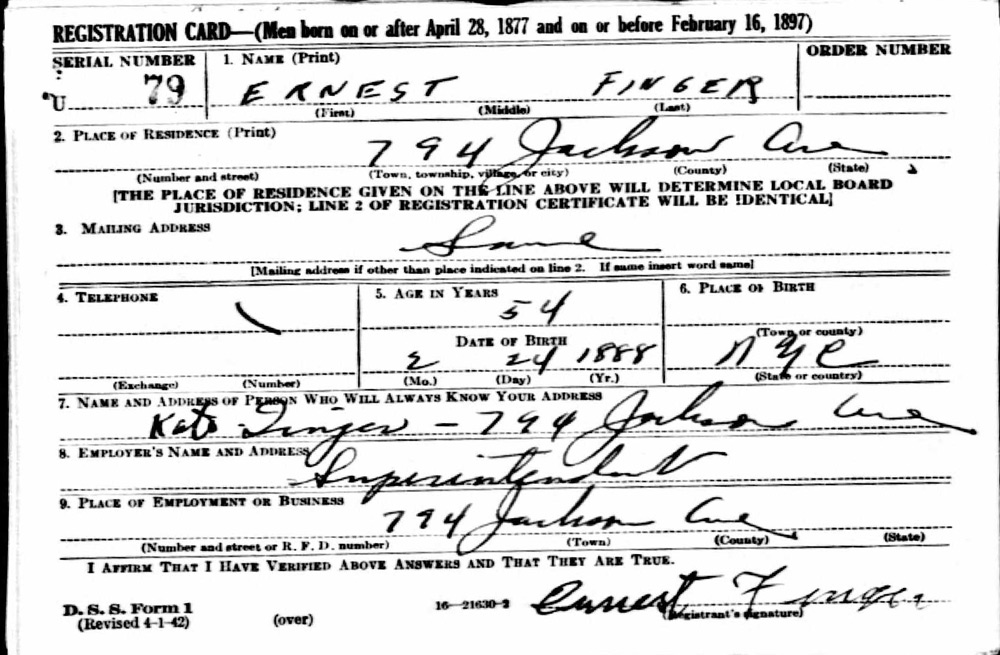 REGISTRATION CARD—(Men born on or after April 28, 1877 and on or before February 16, 1897)
SERIAL NUMBER 1. NAME (Print) ORDER NUMBER
U 79 ERNEST FINGER
(First) (Middle) (Last)
2. PLACE OF RESIDENCE (Print)
794 Jackson Ave
(Number and street) (Town, township, village, or city) (County) (State)
[THE PLACE OF RESIDENCE GIVEN ON THE LINE ABOVE WILL DETERMINE LOCAL BOARD
JURISDICTION; LINE 2 OF REGISTRATION CERTIFICATE WILL BE IDENTICAL]
3. MAILING ADDRESS
Same
[Mailing address if other than place indicated on line 2. If same insert word same]
4. TELEPHONE 5. AGE IN YEARS 6. PLACE OF BIRTH
54
DATE OF BIRTH (Town or county)
2 24 1888 NYC
(Exchange) (Number) (Mo.) (Day) (Yr.) (State or country)
7. NAME AND ADDRESS OF PERSON WHO WILL ALWAYS KNOW YOUR ADDRESS
Kate Finger - 794 Jackson Ave
8. EMPLOYER'S NAME AND ADDRESS
Superintendent
9. PLACE OF EMPLOYMENT OR BUSINESS
794 Jackson Ave
(Number and street or R. F. D. number) (Town) (County) (State)
I AFFIRM THAT I HAVE VERIFIED ABOVE ANSWERS AND THAT THEY ARE TRUE.
D. S. S. Form 1 16—21630-2 Ernest Finger
(Revised 4-1-42) (over) (Registrant's signature)